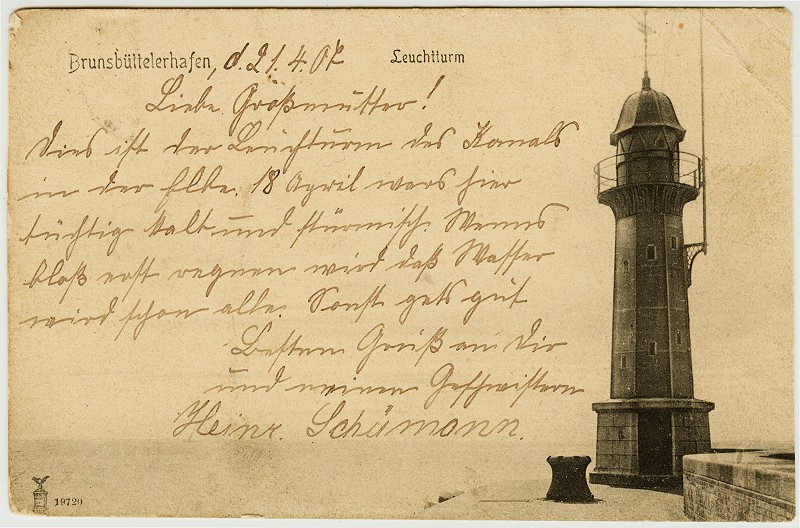 Brunsbüttelerhafen, d. 21.4.07 Leuchtturm
Liebe Großmutter!
Dies ist der Leuchturm des Kanals
in der Elbe. 18 April wars hier
tüchtig kalt und stürmisch. Wenns
bloß erst regnen wird daß Wasser
wird schon alle. Sonst gets gut
Besten Gruß an Dir
und meinen Geschwistern
Heinr. Schümann.
19720